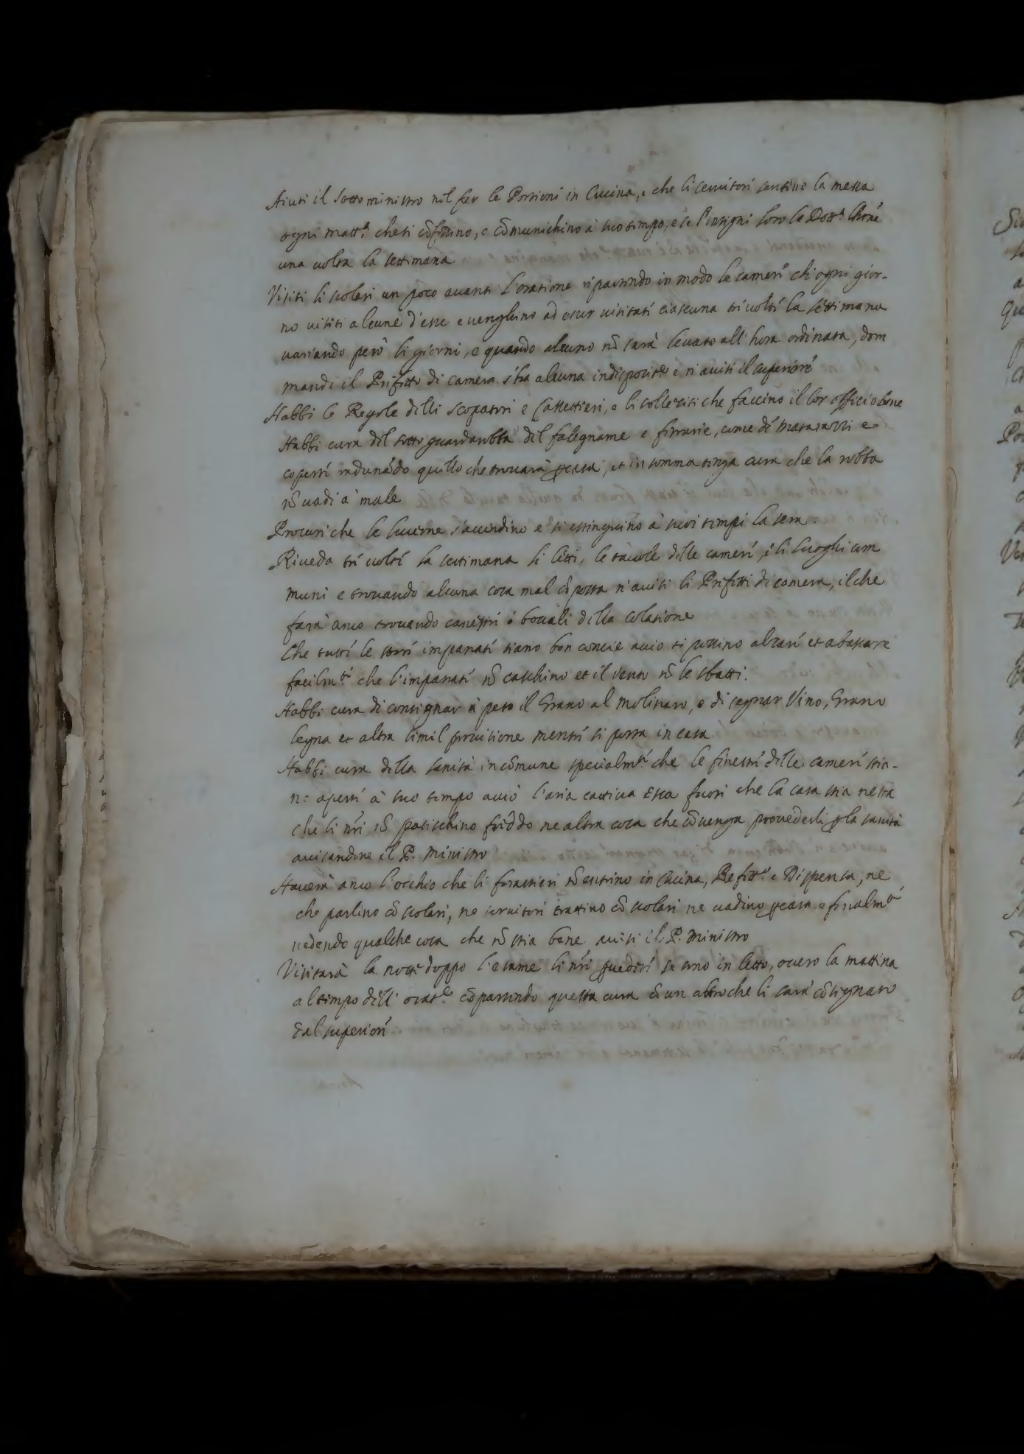 Aiuti il sotto ministro nel far le Portioni in Cucina, e che li seruitori sentino la messa
ogni matt.ª che si cõfessino, e cõmunichino à suo tempo, e se l'insegni loro la Dott.ª Chr̃na
una uolta la settimana
Visiti li scolari un poco auanti l'oratione ripartendo in modo le camere ch'ogni gior-
no uisiti alcune d'esse e uenghino ad esser uisitate ciascuna tre uolte la settimana
uariando però li giorni, e quando alcuno nõ sarà leuato all' hora ordinata, dom
mandi il Prefetto di camera s'ha alcuna indispositᵉ e n'auisi il superiore
Habbi le Regole delli Scopatori e Calsettieri, e li solleciti che faccino il lor officio bene
Habbi cura del sotto guardarobba del falegname e ferrarie, come de matarazzi e
coperte radunãdo quello che trouarà ꝑ casa, et in somma tenga cura che la robba
nõ uadi à male
Procuri che le lucerne s'accendino e si estinguino à suoi tempi la sera
Riueda tre uolte la settimana li letti, le tauole delle camere, e li luoghi com
muni e trouando alcuna cosa mal cõposta n'auisi li Prefetti di camera, il che
farà anco trouando canestri ò bocali della colatione
Che tutte le ... impanate siano ben concie acciò si possino alzare et abassare
facilm.te che l'impanate nõ caschino et il uento nõ le sbatti.
Habbi cura di consignar à peso il Grano al molinaro, e di segnar Vino, Grano
legna et altra simil prouisione mentre si porta in casa
Habbi cura della sanità in cõmune specialm.te che le finestre delle camere stia-
no aperte à suo tempo acciò l'aria cattiua esca fuori che la casa stia netta
che li nr̃i nõ patischino freddo ne altra cosa che cõuenga prouederli ꝑ la sanità
auisandone il P. Ministro
Hauerà anco l'occhio che li forastieri nõ entrino in Cucina, Refitt.º e Dispensa, ne
che parlino cõ scolari, ne seruitori trattino cõ scolari ne uadino ꝑ casa e finalm.te
uedendo qualche cosa che nõ stia bene auisi il P. Ministro
Visitarà la notte doppo l'esame li nr̃i ꝑ uedere se sono in letto, ouero la mattina
al tempo dell' orat.ᵉ cõpartendo questa cura cõ un altro che li sarà cõsignato
dal superiore